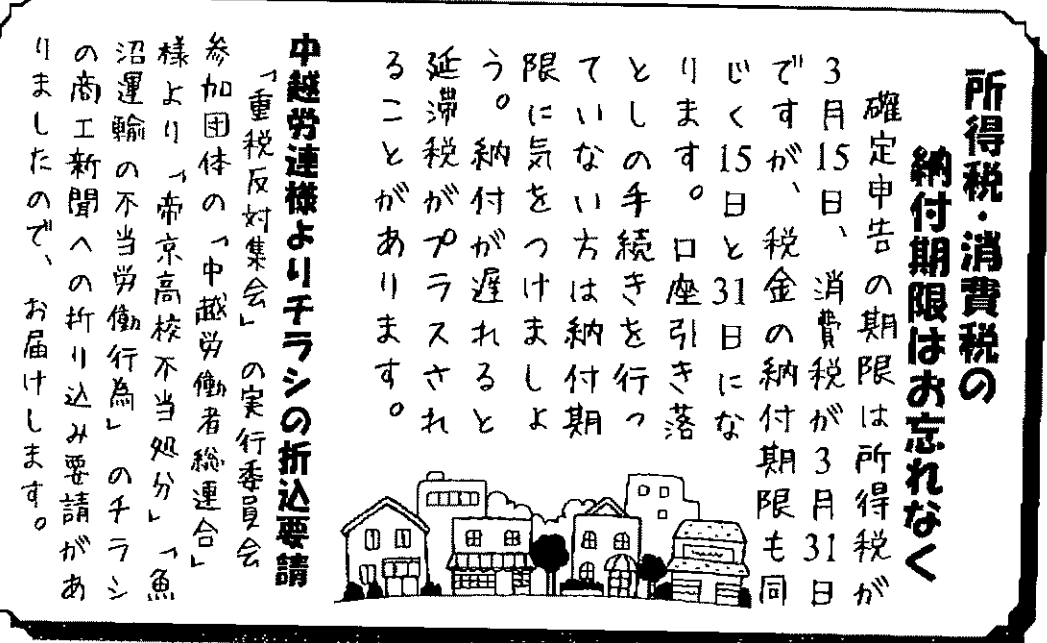 所得税・消費税の
納付期限はお忘れなく
確定申告の期限は所得税が
3月15日、消費税が3月31日
ですが、税金の納付期限も同
じく15日と31日にな
ります。口座引き落
としの手続きを行っ
ていない方は納付期
限に気をつけましょ
う。納付が遅れると
延滞税がプラスされ
ることがあります。
中越労連様よりチラシの折込要請
「重税反対集会」の実行委員会
参加団体の「中越労働者総連合」
様より「帝京高校不当処分」「魚
沼運輸の不当労働行為」のチラシ
の商工新聞への折り込み要請があ
りましたので、お届けします。